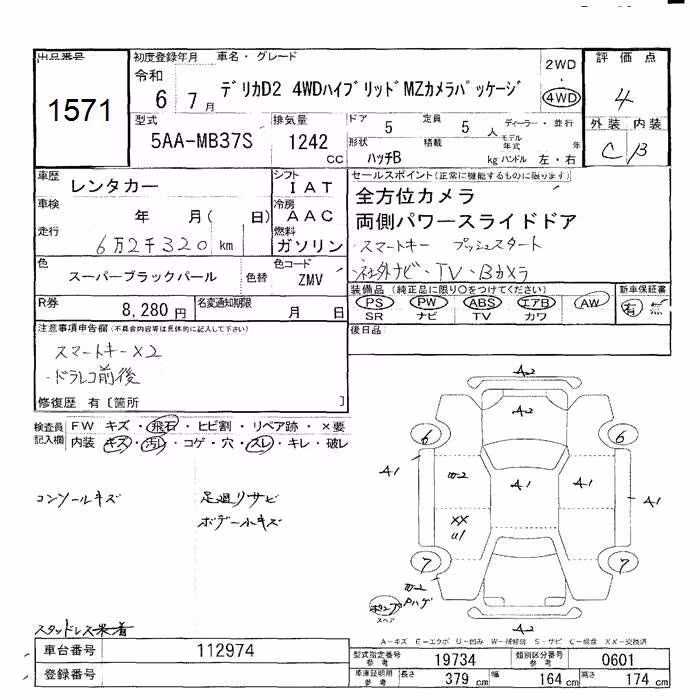 出品番号
1571
初度登録年月
令和
6年7月
車名・グレード
デリカD2 4WDハイブリッドMZカメラパッケージ
2WD
・
4WD
評価点
4
外装 内装
C B
型式
5AA-MB37S
排気量
1242 CC
ドア 5
定員 5 人
ディーラー・並行
形状 ハッチB
積載 kg
モデル年式 年
ハンドル 左・右
車歴 レンタカー
シフト IAT
車検 年 月( 日)
冷房 AAC
走行 6万2千320 km
燃料 ガソリン
色 スーパーブラックパール
色替
色コード ZMV
R券 8,280円
名変通知期限 月 日
セールスポイント(正常に機能するものに限ります)
全方位カメラ
両側パワースライドドア
・スマートキー プッシュスタート
・社外ナビ・TV・Bカメラ
装備品(純正品に限り○をつけてください)
PS PW ABS エアB AW
SR ナビ TV カワ
新車保証書
有 無
後日品
注意事項申告欄(不具合内容等は具体的に記入して下さい)
スマートキー×2
・ドラレコ前後
修復歴 有〔箇所 〕
検査員記入欄
FW キズ・飛石・ヒビ割・リペア跡・×要
内装 キズ・汚レ・コゲ・穴・スレ・キレ・破レ
コンソールキズ
足廻リサビ
ボデー小キズ
スタッドレス装着
A2
A2
6
6
A1
W2
A1
A1
A1
XX
U1
7
7
W2
Pハゲ
スペア
A2
A-キズ E-エクボ U-凹み W-補修跡 S-サビ C-腐食 XX-交換済
車台番号 112974
登録番号
型式指定番号 参考 19734
類別区分番号 参考 0601
車庫証明用 参考
長さ 379 cm
幅 164 cm
高さ 174 cm